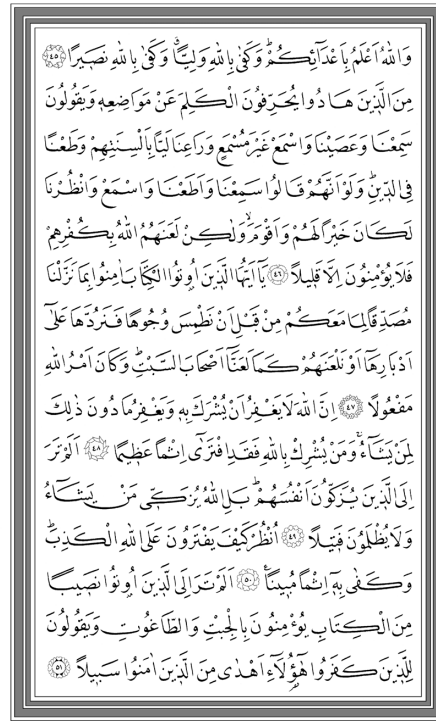 وَاللّٰهُ اَعْلَمُ بِاَعْدَٓائِكُمْۜ وَكَفٰى بِاللّٰهِ وَلِيًّاۘ وَكَفٰى بِاللّٰهِ نَص۪يرًا ﴿٤٥﴾
مِنَ الَّذ۪ينَ هَادُوا يُحَرِّفُونَ الْكَلِمَ عَنْ مَوَاضِعِه۪ وَيَقُولُونَ
سَمِعْنَا وَعَصَيْنَا وَاسْمَعْ غَيْرَ مُسْمَعٍ وَرَاعِنَا لَيًّا بِاَلْسِنَتِهِمْ وَطَعْنًا
فِي الدّ۪ينِۜ وَلَوْ اَنَّهُمْ قَالُوا سَمِعْنَا وَاَطَعْنَا وَاسْمَعْ وَانْظُرْنَا
لَكَانَ خَيْرًا لَهُمْ وَاَقْوَمَۙ وَلٰكِنْ لَعَنَهُمُ اللّٰهُ بِكُفْرِهِمْ
فَلَا يُؤْمِنُونَ اِلَّا قَل۪يلًا ﴿٤٦﴾ يَٓا اَيُّهَا الَّذ۪ينَ اُو۫تُوا الْكِتَابَ اٰمِنُوا بِمَا نَزَّلْنَا
مُصَدِّقًا لِمَا مَعَكُمْ مِنْ قَبْلِ اَنْ نَطْمِسَ وُجُوهًا فَنَرُدَّهَا عَلٰٓى
اَدْبَارِهَٓا اَوْ نَلْعَنَهُمْ كَمَا لَعَنَّٓا اَصْحَابَ السَّبْتِۜ وَكَانَ اَمْرُ اللّٰهِ
مَفْعُولًا ﴿٤٧﴾ اِنَّ اللّٰهَ لَا يَغْفِرُ اَنْ يُشْرَكَ بِه۪ وَيَغْفِرُ مَا دُونَ ذٰلِكَ
لِمَنْ يَشَٓاءُۚ وَمَنْ يُشْرِكْ بِاللّٰهِ فَقَدِ افْتَرٰٓى اِثْمًا عَظ۪يمًا ﴿٤٨﴾ اَلَمْ تَرَ
اِلَى الَّذ۪ينَ يُزَكُّونَ اَنْفُسَهُمْۜ بَلِ اللّٰهُ يُزَكّ۪ي مَنْ يَشَٓاءُ
وَلَا يُظْلَمُونَ فَت۪يلًا ﴿٤٩﴾ اُنْظُرْ كَيْفَ يَفْتَرُونَ عَلَى اللّٰهِ الْكَذِبَۜ
وَكَفٰى بِه۪ٓ اِثْمًا مُب۪ينًا۟ ﴿٥٠﴾ اَلَمْ تَرَ اِلَى الَّذ۪ينَ اُو۫تُوا نَص۪يبًا
مِنَ الْكِتَابِ يُؤْمِنُونَ بِالْجِبْتِ وَالطَّاغُوتِ وَيَقُولُونَ
لِلَّذ۪ينَ كَفَرُوا هٰٓؤُ۬لَٓاءِ اَهْدٰى مِنَ الَّذ۪ينَ اٰمَنُوا سَب۪يلًا ﴿٥١﴾